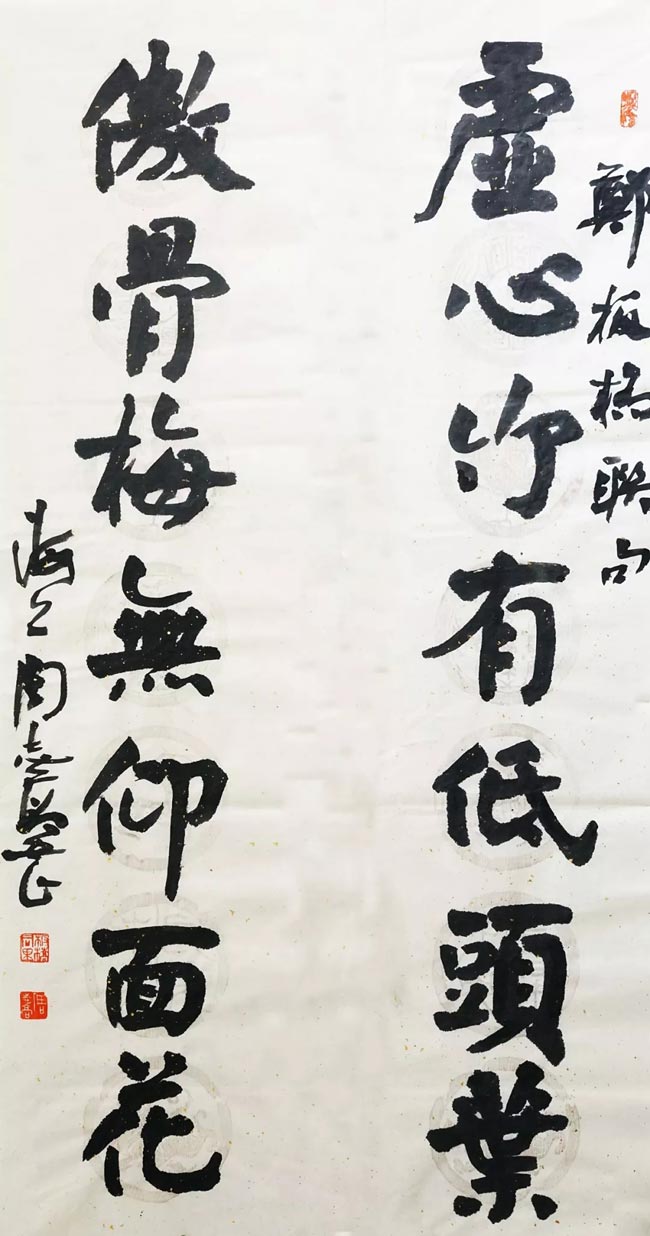 鄭板橋聯句
虛心竹有低頭葉
傲骨梅無仰面花
海上周志高書